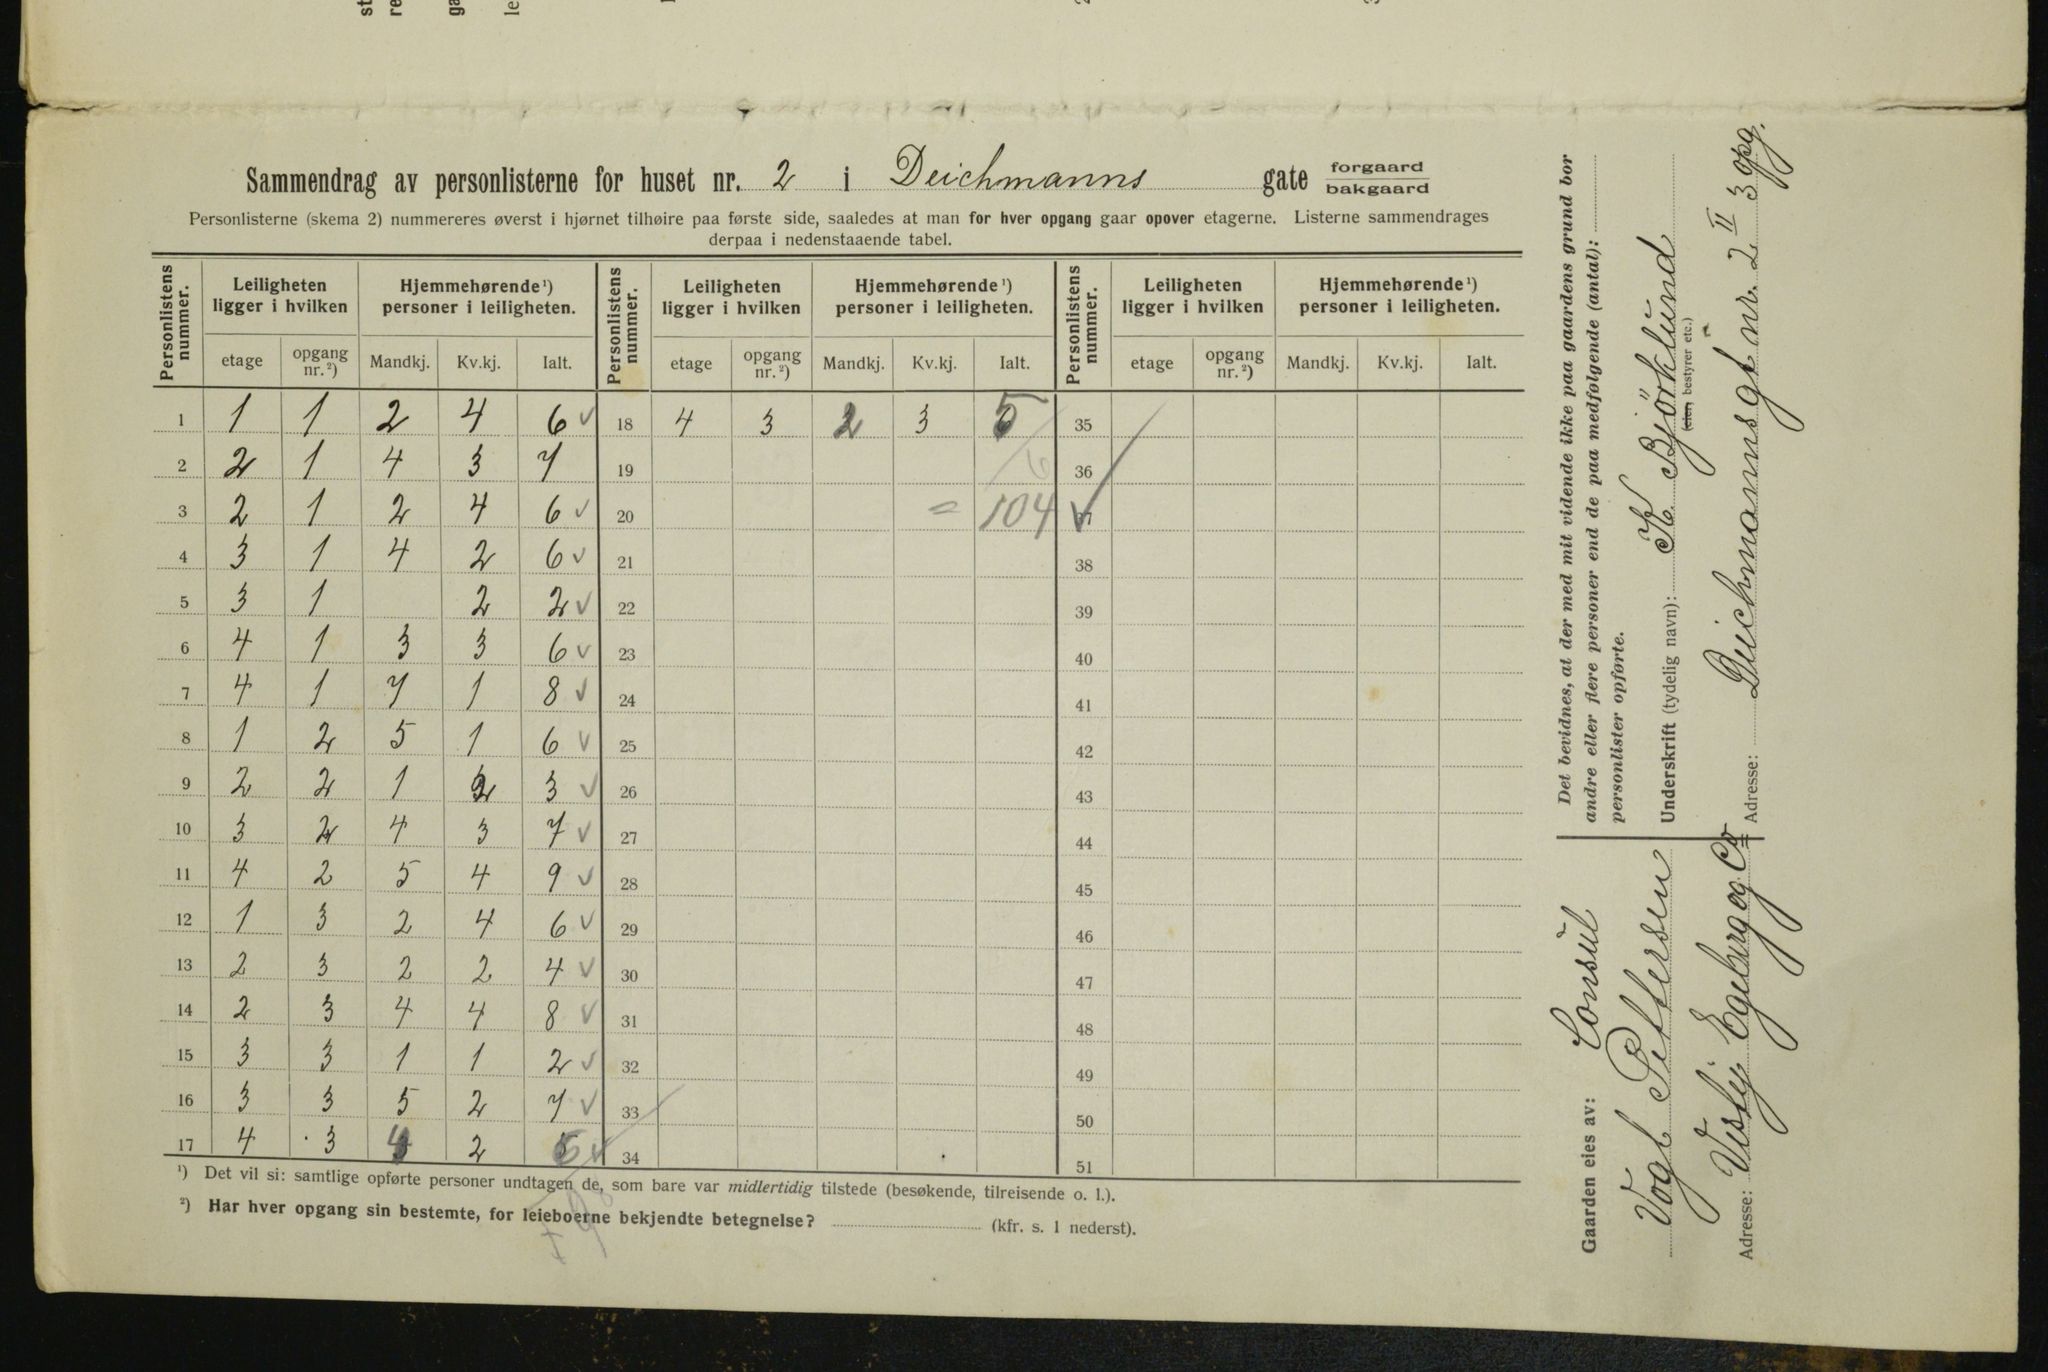 Sammendrag av personlisterne for huset nr. 2 i Deichmanns gate forgaard bakgaard
Personlisterne (skema 2) nummereres øverst i hjørnet tilhøire paa første side, saaledes at man for hver opgang gaar opover etagerne. Listerne sammendrages
derpaa i nedenstaaende tabel.
Personlistens nummer. Leiligheten ligger i hvilken Hjemmehørende ¹) personer i leiligheten. Personlistens nummer. Leiligheten ligger i hvilken Hjemmehørende ¹) personer i leiligheten. Personlistens nummer. Leiligheten ligger i hvilken Hjemmehørende ¹) personer i leiligheten.
etage opgang nr. ²) Mandkj. Kv.kj. Ialt. etage opgang nr. ²) Mandkj. Kv.kj. Ialt. etage opgang nr. ²) Mandkj. Kv.kj. Ialt.
1 1 1 2 4 6 ✓ 18 4 3 2 3 5 35
2 2 1 4 3 7 19 36
3 2 1 2 4 6 ✓ 20 = 104 ✓
4 3 1 4 2 6 ✓ 21 38
5 3 1 2 2 ✓ 22 39
6 4 1 3 3 6 ✓ 23 40
7 4 1 7 1 8 ✓ 24 41
8 1 2 5 1 6 ✓ 25 42
9 2 2 1 2 3 ✓ 26 43
10 3 2 4 3 7 ✓ 27 44
11 4 2 5 4 9 ✓ 28 45
12 1 3 2 4 6 ✓ 29 46
13 2 3 2 2 4 ✓ 30 47
14 2 3 4 4 8 ✓ 31 48
15 3 3 1 1 2 ✓ 32 49
16 3 3 5 2 7 ✓ 33 50
17 4 3 4 2 6 ✓ 34 51
¹) Det vil si: samtlige opførte personer undtagen de, som bare var midlertidig tilstede (besøkende, tilreisende o. l.).
²) Har hver opgang sin bestemte, for leieboerne bekjendte betegnelse? (kfr. s. 1 nederst).
Det bevidnes, at der med mit vidende ikke paa gaardens grund bor
andre eller flere personer end de paa medfølgende (antal):
personlister opførte.
Underskrift (tydelig navn): K Bjørklund
(eier, bestyrer etc.)
Adresse: Deichmannsgt nr. 2 II 3 opg.
Gaarden eies av: Consul
Vogt Pettersen
Adresse: Vestly Egeberg og Co